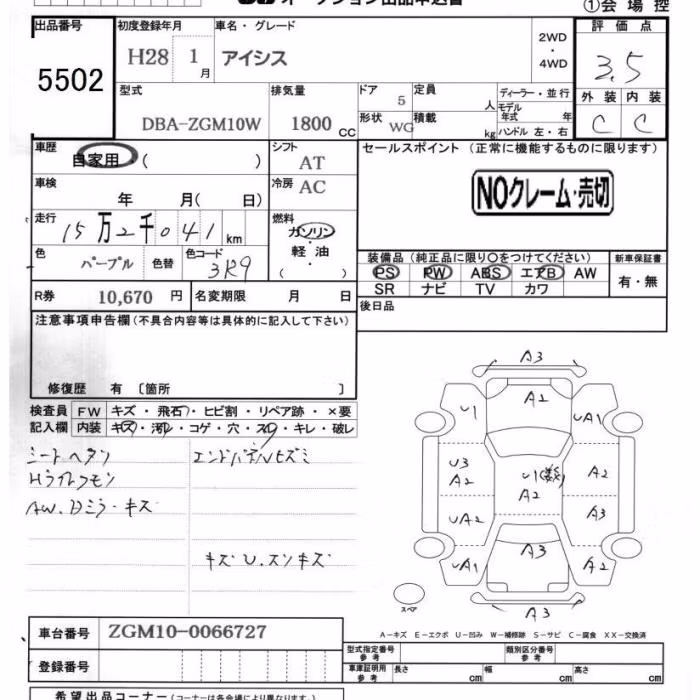 オークション出品申込書
①会場控
出品番号
5502
初度登録年月
H28 1月
車名・グレード
アイシス
2WD
・
4WD
評価点
3.5
外装 内装
C C
型式
DBA-ZGM10W
排気量
1800 CC
ドア
5
定員
人
形状
WG
積載
kg
ディーラー・並行
モデル年式 年
ハンドル 左・右
車歴
自家用・( )
シフト
AT
車検
年 月( 日)
冷房
AC
走行
15万2千041 km
燃料
ガソリン
・
軽油
( )
色
パープル
色替
色コード
3R9
R券 10,670 円
名変期限 月 日
セールスポイント(正常に機能するものに限ります)
NOクレーム・売切
装備品(純正品に限り○をつけてください)
PS PW ABS エアB AW
SR ナビ TV カワ
新車保証書
有・無
後日品
注意事項申告欄(不具合内容等は具体的に記入して下さい)
修復歴 有〔箇所 〕
検査員記入欄
FW キズ・飛石・ヒビ割・リペア跡・×要
内装 キズ・汚れ・コゲ・穴・スレ・キレ・破レ
シートヘタリ
エンドパネルヒズミ
Hライトクモリ
AW、Dミラーキズ
キズU.スソキズ
A3
A2
U1
UA1
U3
A2
U1(数)
A2
A2
UA2
A3
UA1
A3
A2
A3
スペア
A-キズ E-エクボ U-凹み W-補修跡 S-サビ C-腐食 XX-交換済
車台番号 ZGM10-0066727
登録番号
型式指定番号 参考
類別区分番号 参考
車庫証明用 参考
長さ cm
幅 cm
高さ cm
希望出品コーナー(コーナーは各会場により異なります)